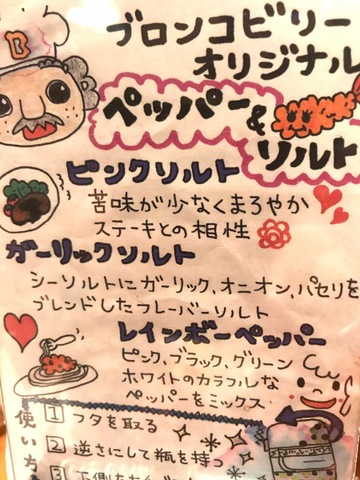 B
ブロンコビリー
オリジナル
ペッパー&
ソルト
ピンクソルト
苦味が少なくまろやか
ステーキとの相性
ガーリックソルト
シーソルトにガーリック、オニオン、パセリを
ブレンドしたフレーバーソルト
レインボーペッパー
ピンク、ブラック、グリーン
ホワイトのカラフルな
ペッパーをミックス
使い方
1 フタを取る
2 逆さにして瓶を持つ
3